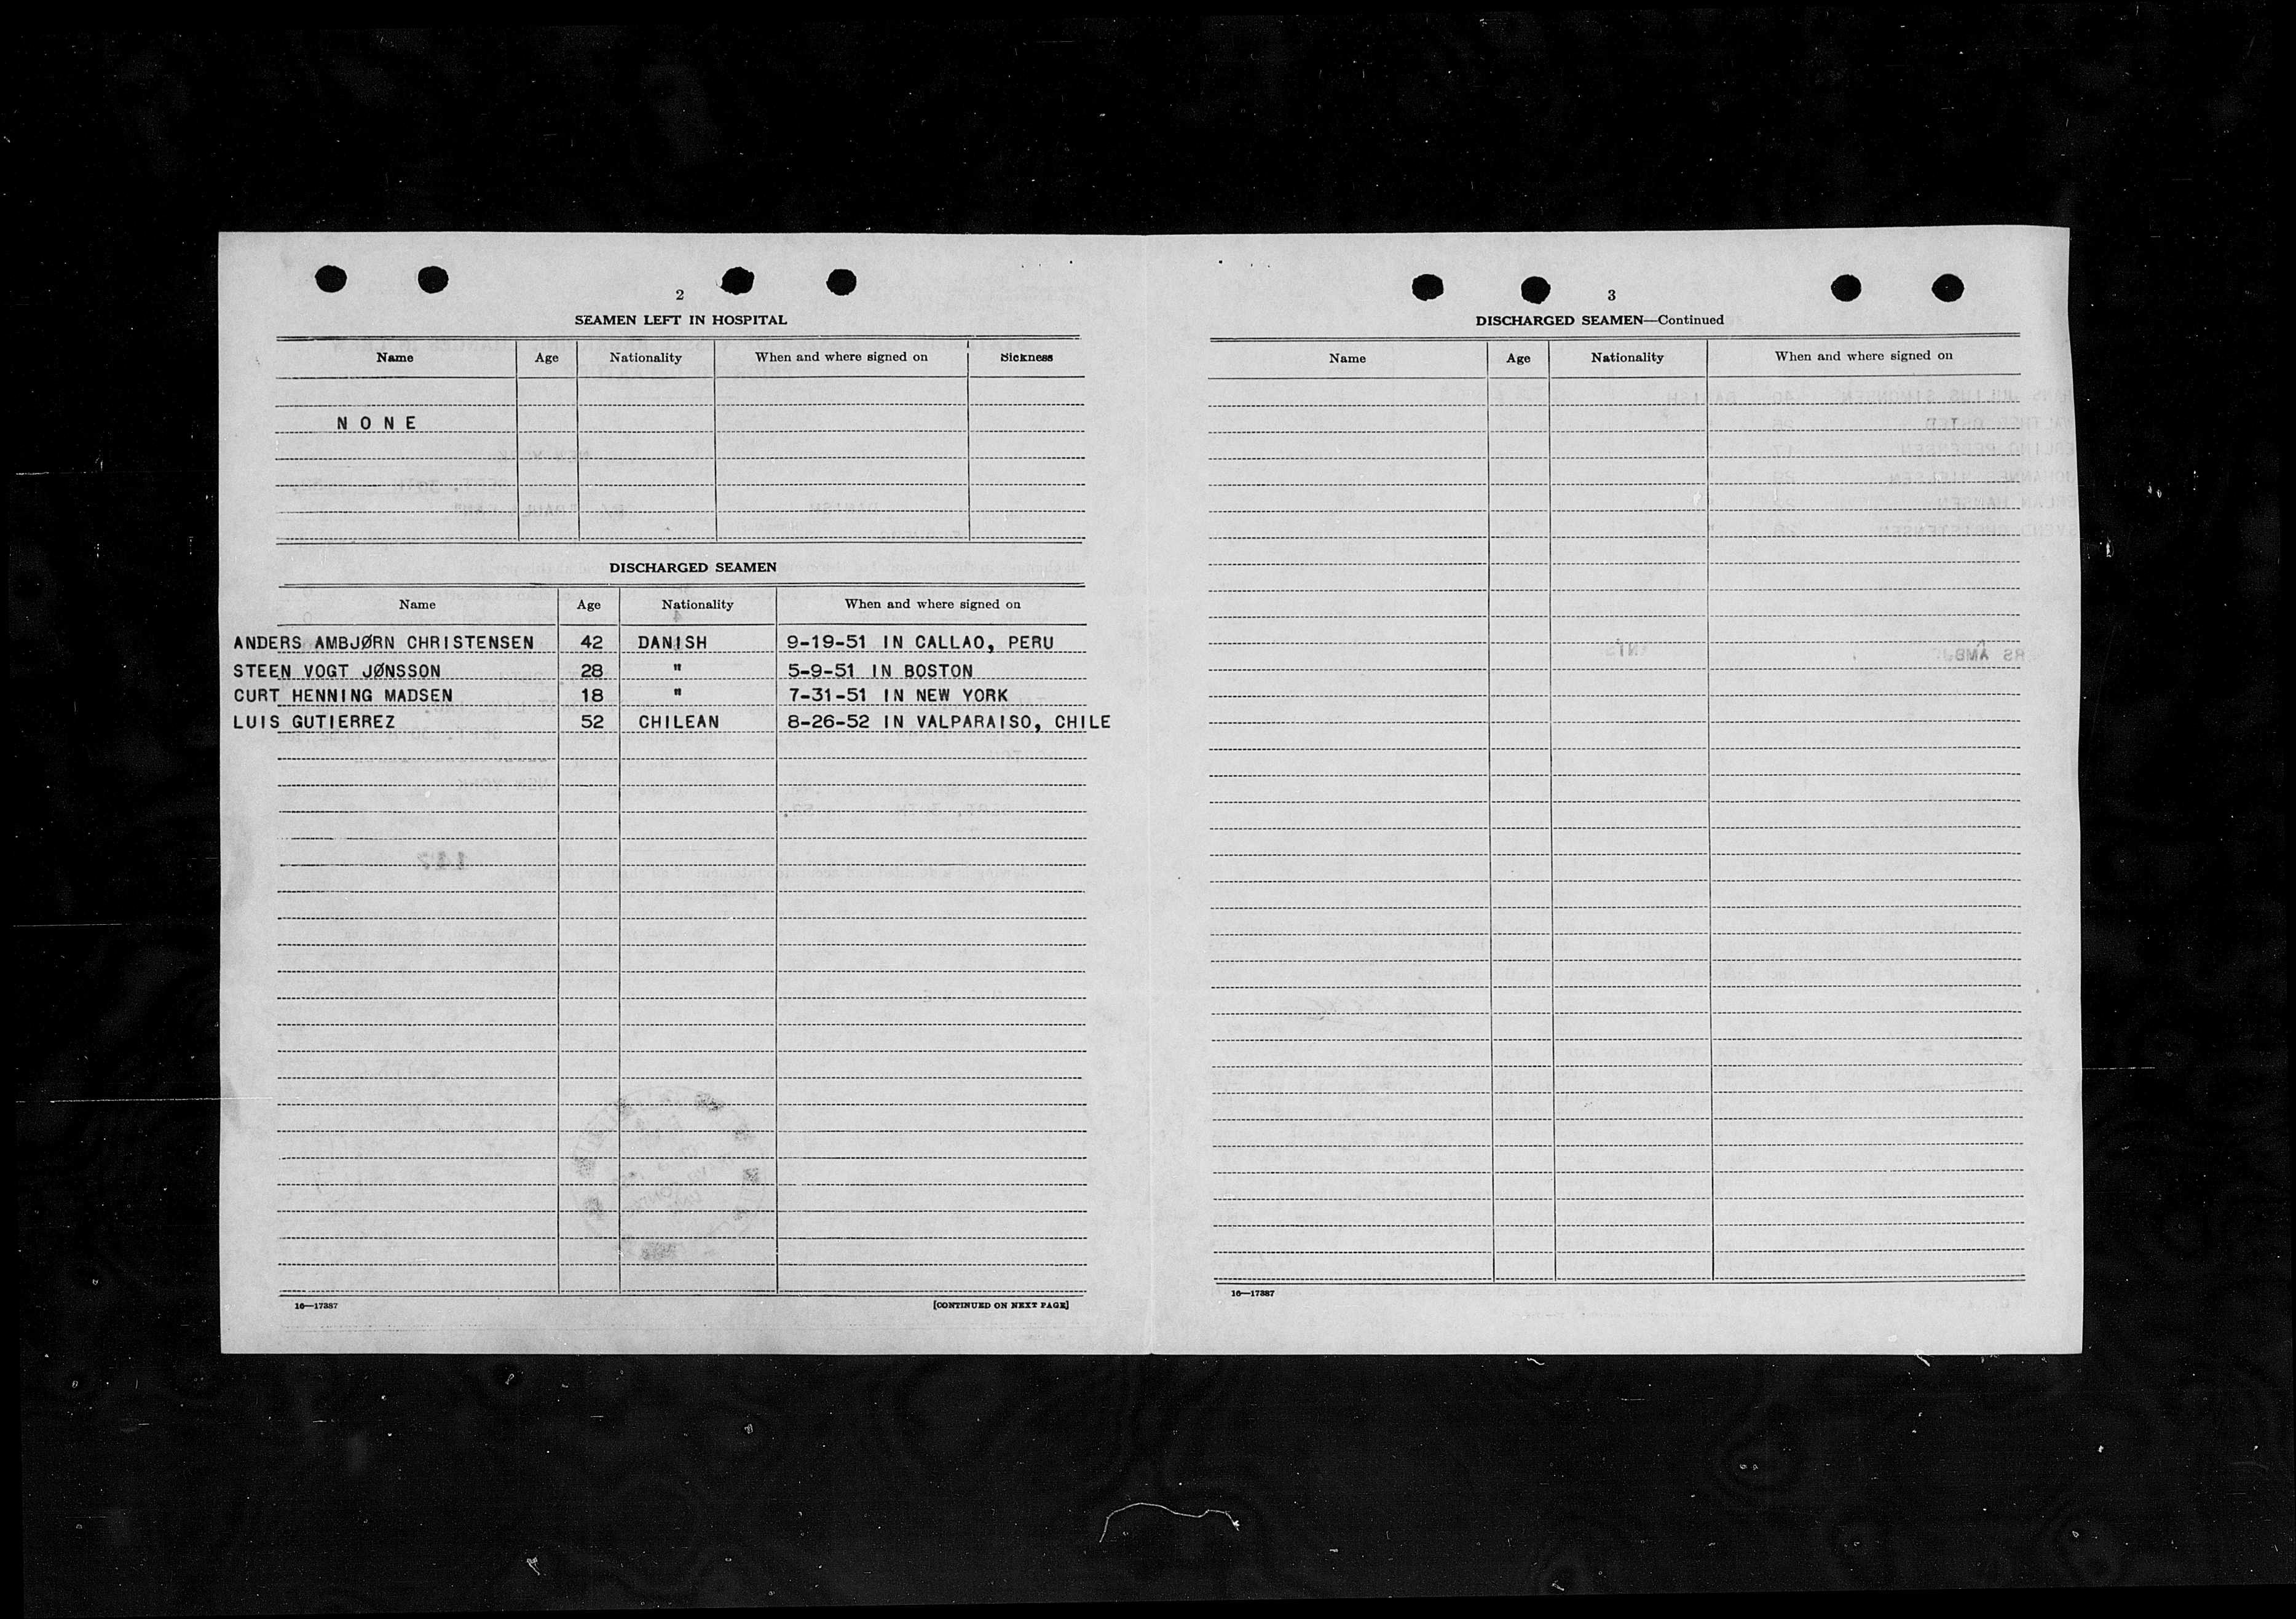 2
SEAMEN LEFT IN HOSPITAL
Name Age Nationality When and where signed on Sickness
NONE
DISCHARGED SEAMEN
Name Age Nationality When and where signed on
ANDERS AMBJØRN CHRISTENSEN 42 DANISH 9-19-51 IN CALLAO, PERU
STEEN VOGT JØNSSON 28 " 5-9-51 IN BOSTON
CURT HENNING MADSEN 18 " 7-31-51 IN NEW YORK
LUIS GUTIERREZ 52 CHILEAN 8-26-52 IN VALPARAISO, CHILE
16—17387 [CONTINUED ON NEXT PAGE]
3
DISCHARGED SEAMEN—Continued
Name Age Nationality When and where signed on
16—17387